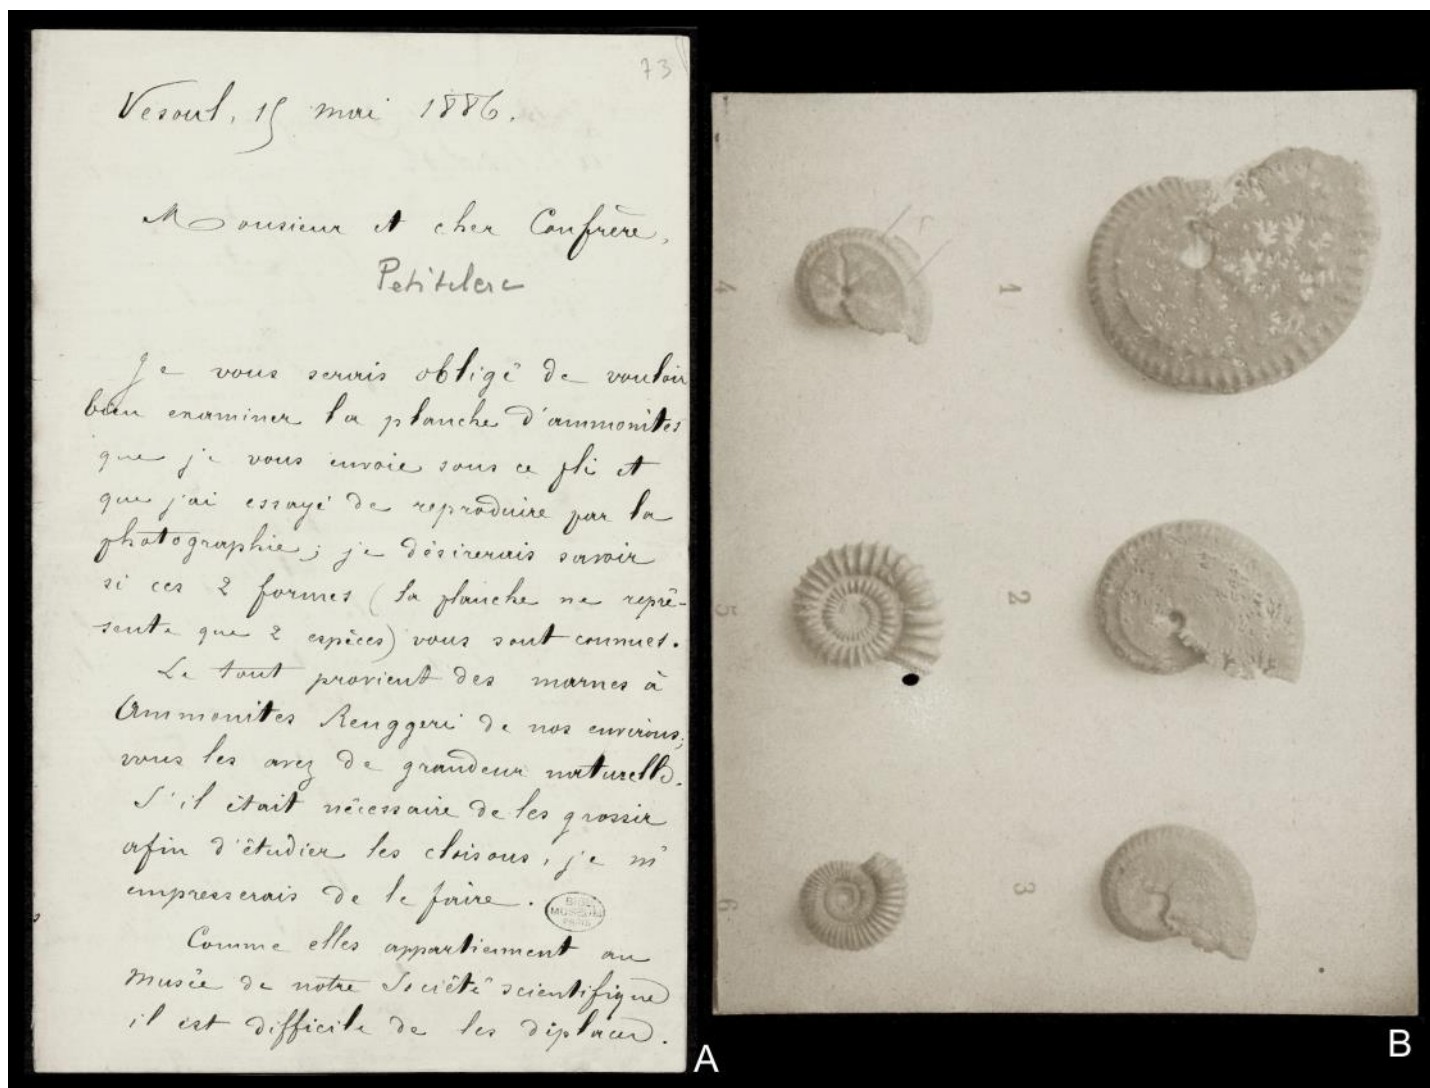 73
Vesoul, 15 mai 1886.
Monsieur et cher Confrère,
Petitclerc
Je vous serais obligé de vouloir
bien examiner la planche d'ammonites
que je vous envoie sous ce pli et
que j'ai essayé de reproduire par la
photographie; je désirerais savoir
si ces 2 formes (la planche ne repré-
sente que 2 espèces) vous sont connues.
Le tout provient des marnes à
Ammonites Renggeri de nos environs;
vous les avez de grandeur naturelle.
S'il était nécessaire de les grossir
afin d'étudier les cloisons, je m'
empresserais de le faire.
BIBL
MUSEUM
PARIS
Comme elles appartiennent au
Musée de notre Société scientifique
il est difficile de les déplacer.
A
4
1
5
2
6
3
B